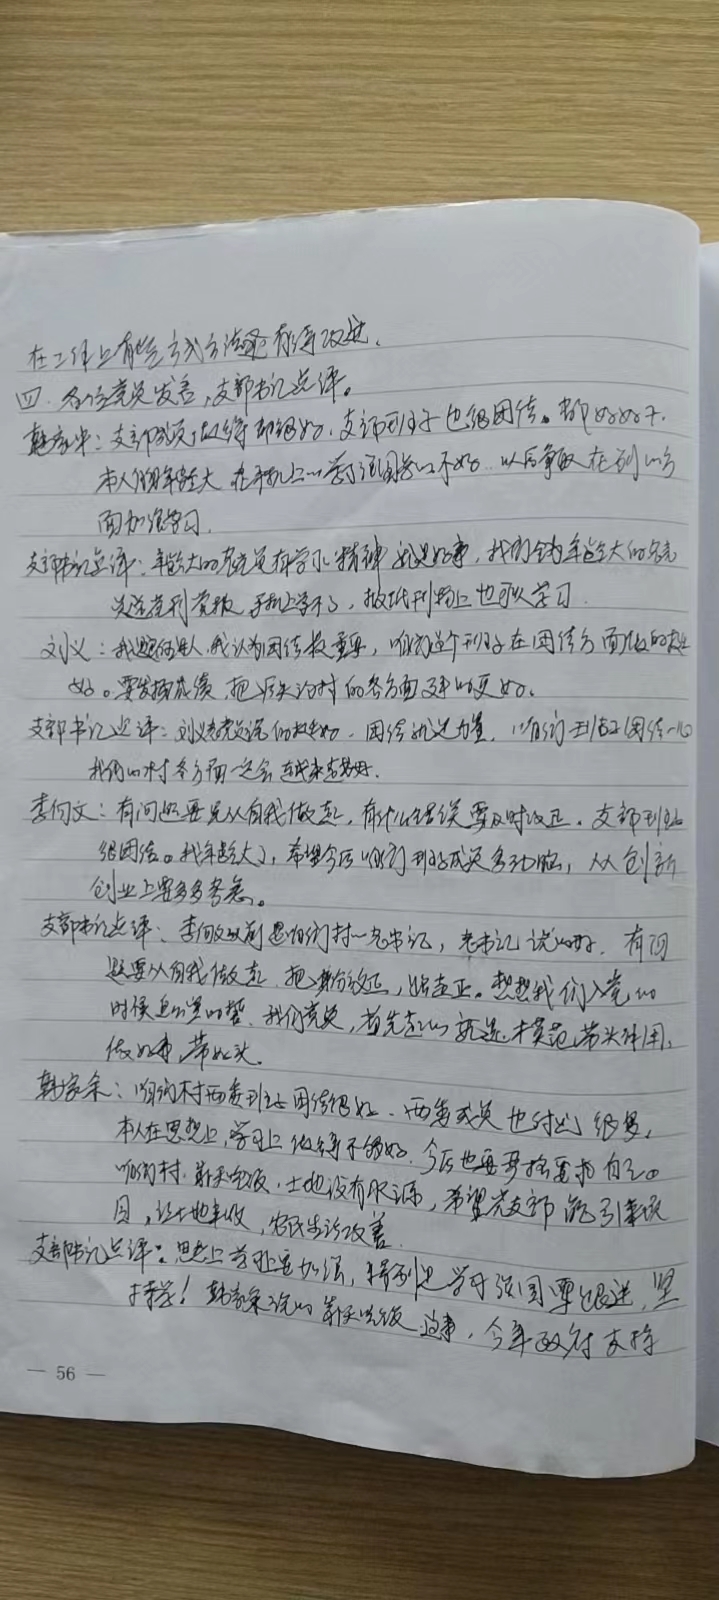 在工作上有些方式方法还有待改进。
四、各位党员发言,支部书记点评。
韩家中:支部成员做得都很好,支部班子也很团结。都好好干.
本人年龄大 在手机上的学习强国学的不好 以后争取在别的方
面加强学习.
支部书记点评:年龄大的老党员有学习精神就是好事,我们会为年龄大的老党
员送党刊党报,手机上学不了,报纸刊物上也可以学习.
刘义:我认为团结最重要,咱们这个班子在团结方面做的挺
好。要发扬成绩,把 村的各方面 的更好。
支部书记点评:刘义老党员说的挺好.团结就是力量,咱们班子团结一心
我们的村各方面一定会越来越好.
李何文:有问题要先从自我做起,有什么错误要及时改正.支部班子
很团结。我年龄大了,希望今后咱们班子成员多动脑,从创新
创业上要多多考虑。
支部书记点评:李何文以前是咱们村老书记,老书记说的好.有问
题要从自我做起.把身份放正,站正。想想我们入党的
时候 的誓.我们党员,首先起的就是模范带头作用,
做好事,带好头.
韩家余:咱们村两委班子团结很好.两委成员也付出很多,
本人在思想上,学习上做得不够好.今后也要严格要求自己。
咱们村靠天吃饭,土地没有水源,希望党支部能引来项
目,让土地丰收,农民生活改善.
支部书记点评:思想上学习上要加强,特别是学习强国要跟进,坚
持学!韩家余说的靠天吃饭这事,今年政府支持
— 56 —